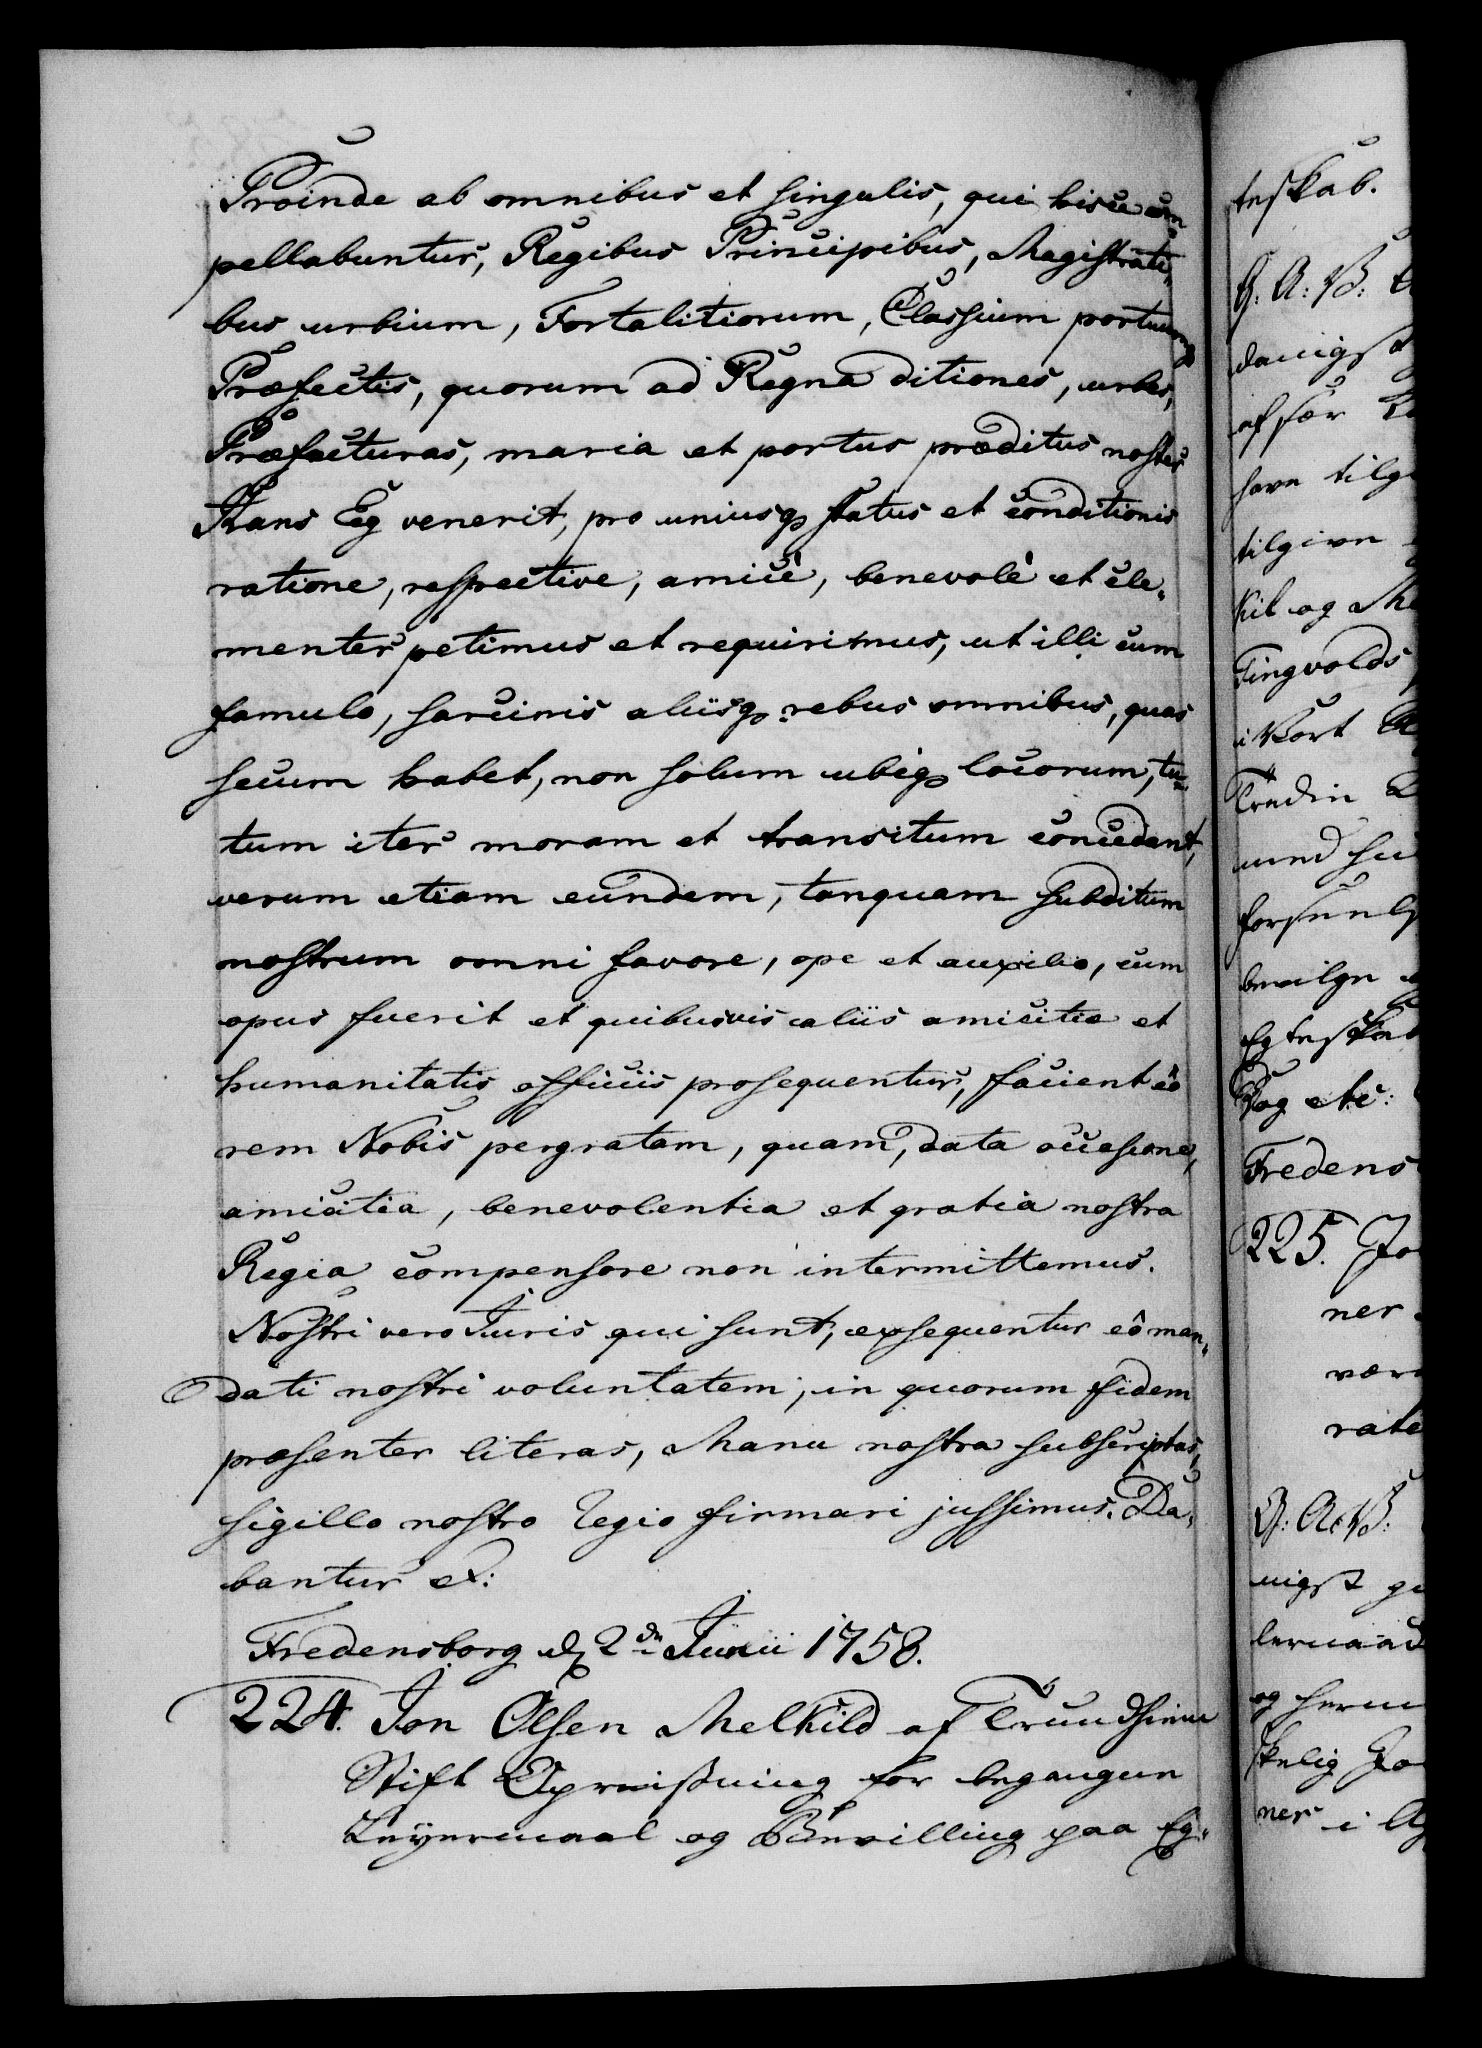 Proinde ab omnibus et singulis, qui hisce com
pellabuntur, Regibus Principibus, Magistrati-
bus urbium, Fortalitiorum, Classium portuumqꝫ
Præfectis, quorum ad Regna ditiones, urbes,
Præfecturas, maria et portus præditus noster
Hans Eeg venerit, pro uniusqꝫ status et conditionis
ratione, respective, amicè, benevolè et cle-
menter petimus et requirimus, ut illi cum
famulo, sarcinis aliisqꝫ rebus omnibus, quas
secum habet, non solum ubiqꝫ locorum, tu-
tum iter moram et transitum concedant,
verum etiam eundem, tanquam subditum
nostrum omni favore, ope et auxilio, cum
opus fuerit et quibusvis aliis amicitiæ et
humanitatis officiis prosequentur, facient eô
rem Nobis pergratam, quam, data occasione,
amicitia, benevolentia et gratia nostra
Regia compensare non intermittemus.
Nostri vero Juris qui sunt, exsequentur eô man-
dati nostri voluntatem, in quorum fidem
præsentes literas, Manu nostra subscriptas,
sigillo nostro Regio firmari jussimus. Da-
bantur &:
Fredensborg d 2dn Junii 1758.
224. Jon Olsen Melkild af Trundhiem
Stift Opreisning for begangen
Leyermaal og Bevilling paa Eg-
teskab.
G: A: V:
havn tilg
tilgiven
kil og Me
Tingvolds
i Vort
Bog etc:
Fredens
225. Jo
ner
være
rate
G: A: V:
nigst
og
skelig Jo
ner i